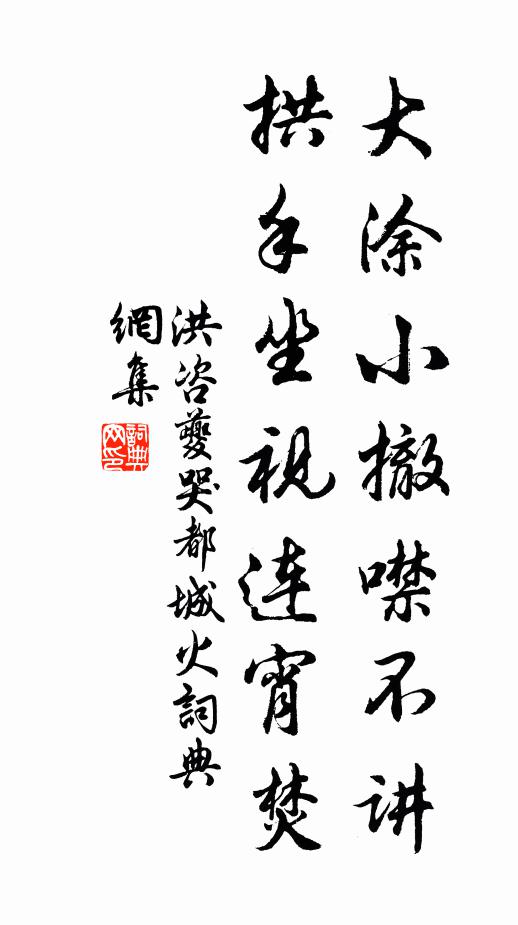 大涂小撤噤不讲
拱手坐视连宵焚
洪咨夔哭都城火詞典
網集
詞典
网印